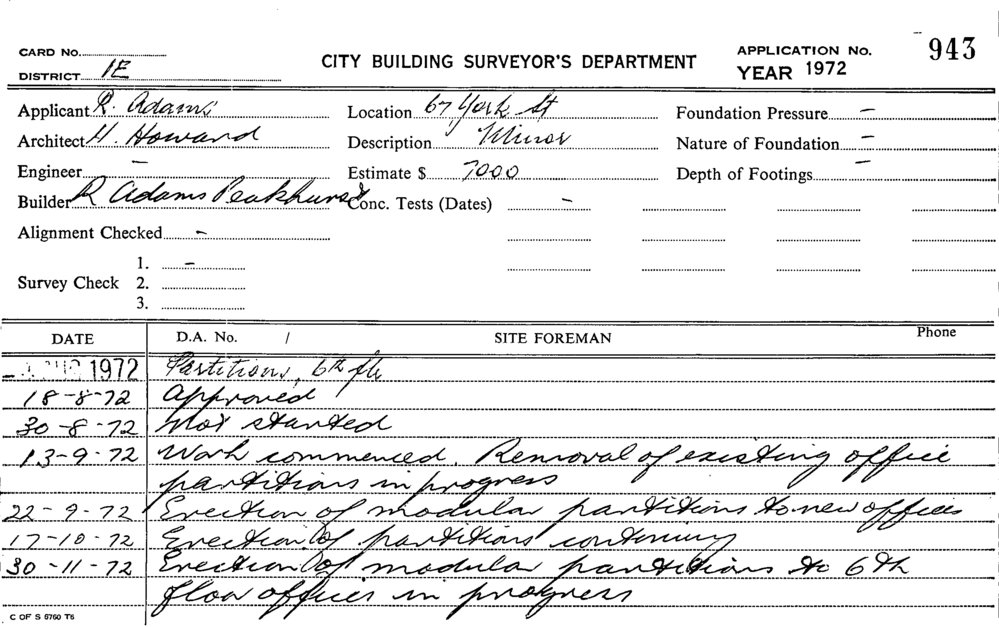 CARD No.
DISTRICT 1E
CITY BUILDING SURVEYOR'S DEPARTMENT
APPLICATION No. 943
YEAR 1972
Applicant R. Adams
Location 67 York St
Foundation Pressure –
Architect H. Howard
Description Minor
Nature of Foundation –
Engineer –
Estimate $ 7000
Depth of Footings –
Builder R Adams Peakhurst
Conc. Tests (Dates) –
Alignment Checked –
Survey Check
1. –
2.
3.
DATE D.A. No. / SITE FOREMAN Phone
AUG 1972 Partitions, 6th flr
18-8-72 Approved
30-8-72 Not started
13-9-72 Work commenced. Removal of existing office
partitions in progress
22-9-72 Erection of modular partitions to new offices
17-10-72 Erection of partitions continuing
30-11-72 Erection of modular partitions to 6th
floor offices in progress
C OF S 6760 T6